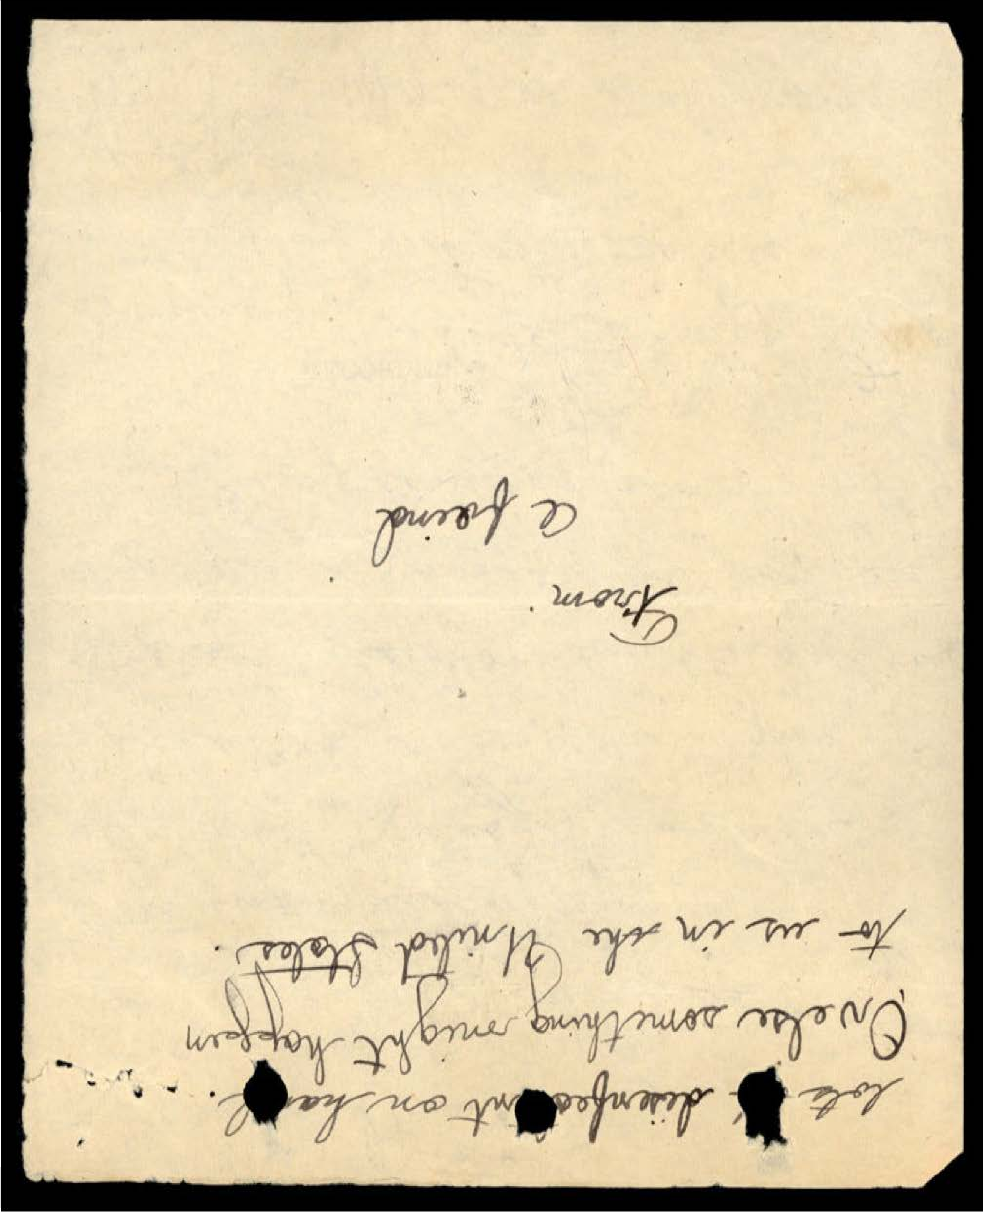 lots of disenfectant on hand.
Or else something might happen
to us in the United States.
From
A freind